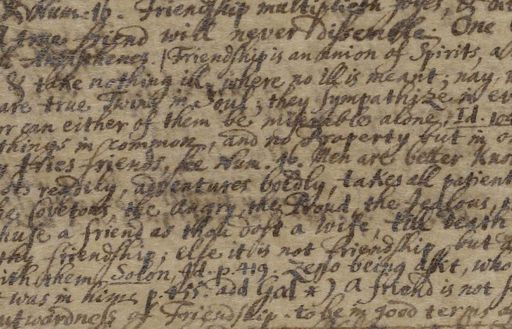 Num. 16. Friendship multiplieth Joyes, &
true friend will never dissemble. One
Friendship is an union of Spirits, a
& take nothing ill, where no ill is meant; nay
are true Twins in Soul; they sympathize in
can either of them be miserable alone, Id. 10
things in common, and no Property but in
tries friends, See Num. 96. Men are better kno
readily, adventures boldly, takes all patient
the Covetous, the Angry, the Proud, the Jealous, t
chuse a friend as thou dost a wife, till death
the friendship; else it is not friendship, but
with them. Solon, Id. p. 419. Zeno being askt, who
was in him p. 455. add Gal *) A friend is not
outwardness of Friendship. to be in good terms